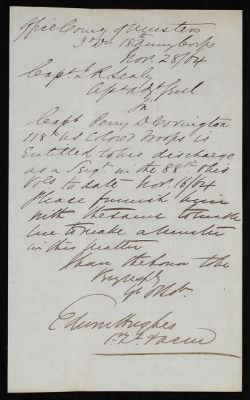 Office Comy of Musters
3d Div 18th Army Corps
Nov. 28/64
Capt
Sir
Capt Perry D. Covington
118th US Colored Troops is
Entitled to his discharge
as a Sergt in the 88th Ohio
Vols to date Nov. 16/64
Please furnish him
with the same to enable
me to make a muster
in this matter
I have the honor to be
Very respfy
Yr Ob Svt
Edwin Hughes
1st Lt &